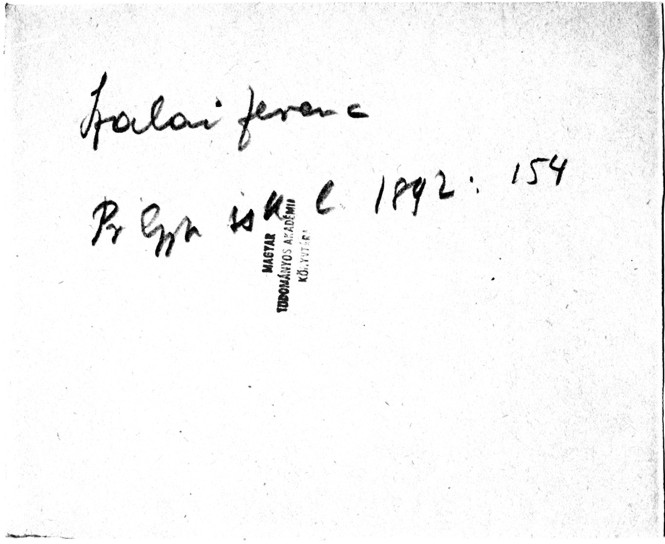 Szalai Ferenc
Pr Egyh isk l. 1892: 154
MAGYAR
TUDOMÁNYOS AKADÉMIA
KÖNYVTÁRA